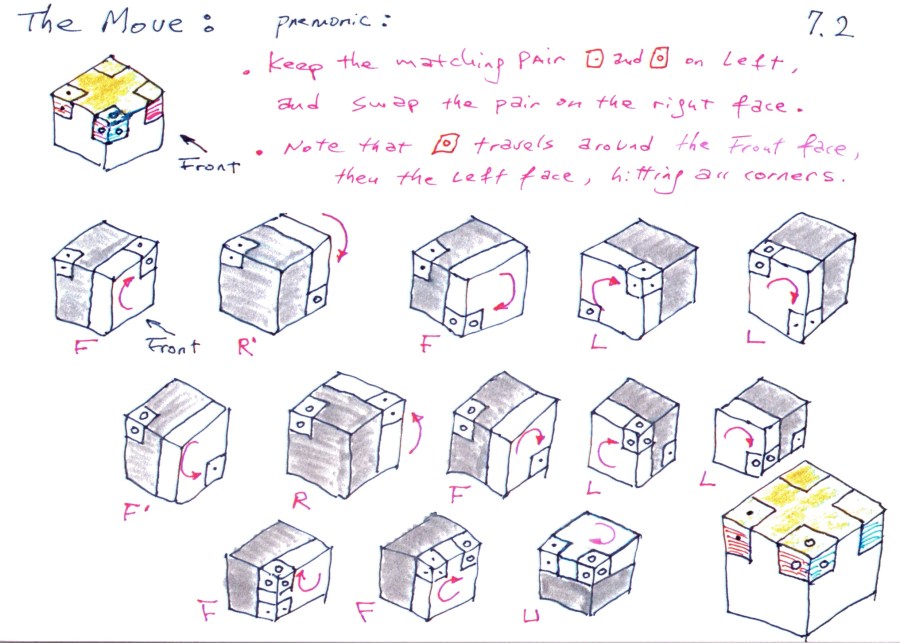 The Move: pnemonic: 7.2
• Keep the matching pair and on Left,
and swap the pair on the right face.
• Note that travels around the Front face,
then the Left face, hitting all corners.
Front
F Front R' F L L
F' R F L L
F F U